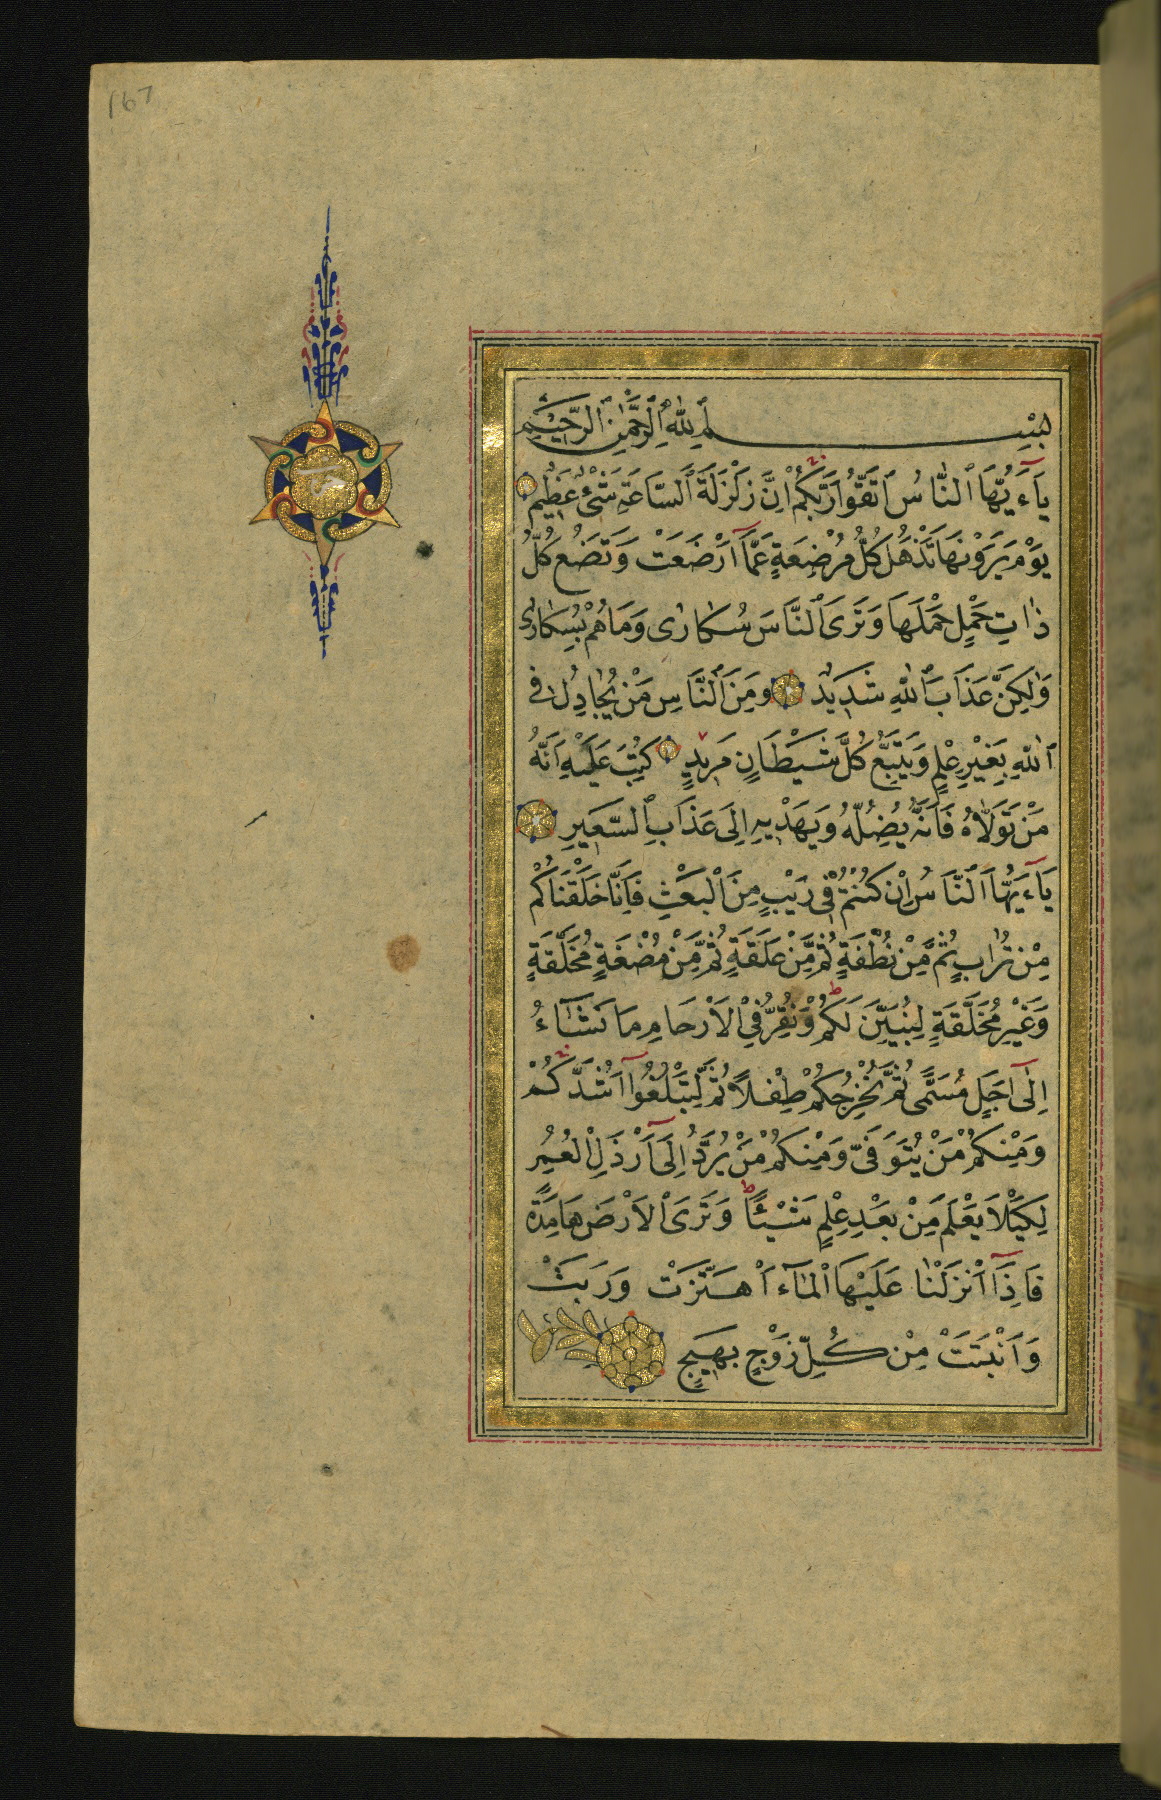 167
بِسْمِ ٱللّٰهِ ٱلرَّحْمٰنِ ٱلرَّحِيمِ
يَآءَيُّهَا ٱلنَّاسُ ٱتَّقُوا رَبَّكُمْ اِنَّ زَلْزَلَةَ ٱلسَّاعَةِ شَىْءٌ عَظِيمٌ
يَوْمَ تَرَوْنَهَا تَذْهَلُ كُلُّ مُرْضِعَةٍ عَمَّآ اَرْضَعَتْ وَتَضَعُ كُلُّ
ذَاتِ حَمْلٍ حَمْلَهَا وَتَرَى ٱلنَّاسَ سُكَارٰى وَمَا هُمْ بِسُكَارٰى
وَلٰكِنَّ عَذَابَ ٱللّٰهِ شَدِيدٌ وَمِنَ ٱلنَّاسِ مَنْ يُجَادِلُ فِى
ٱللّٰهِ بِغَيْرِ عِلْمٍ وَيَتَّبِعُ كُلَّ شَيْطَانٍ مَرِيدٍ كُتِبَ عَلَيْهِ اَنَّهُ
مَنْ تَوَلَّاهُ فَاَنَّهُ يُضِلُّهُ وَيَهْدِيهِ اِلَى عَذَابِ ٱلسَّعِيرِ
يَآءَيُّهَا ٱلنَّاسُ اِنْ كُنْتُمْ فِى رَيْبٍ مِنَ ٱلْبَعْثِ فَاِنَّا خَلَقْنَاكُمْ
مِنْ تُرَابٍ ثُمَّ مِنْ نُطْفَةٍ ثُمَّ مِنْ عَلَقَةٍ ثُمَّ مِنْ مُضْغَةٍ مُخَلَّقَةٍ
وَغَيْرِ مُخَلَّقَةٍ لِنُبَيِّنَ لَكُمْ وَنُقِرُّ فِى ٱلْاَرْحَامِ مَا نَشَآءُ
اِلٰٓى اَجَلٍ مُسَمًّى ثُمَّ نُخْرِجُكُمْ طِفْلًا ثُمَّ لِتَبْلُغُوٓا اَشُدَّكُمْ
وَمِنْكُمْ مَنْ يُتَوَفّٰى وَمِنْكُمْ مَنْ يُرَدُّ اِلٰٓى اَرْذَلِ ٱلْعُمُرِ
لِكَيْلَا يَعْلَمَ مِنْ بَعْدِ عِلْمٍ شَيْئًا وَتَرَى ٱلْاَرْضَ هَامِدَةً
فَاِذَآ اَنْزَلْنَا عَلَيْهَا ٱلْمَآءَ ٱهْتَزَّتْ وَرَبَتْ
وَاَنْبَتَتْ مِنْ كُلِّ زَوْجٍ بَهِيجٍ